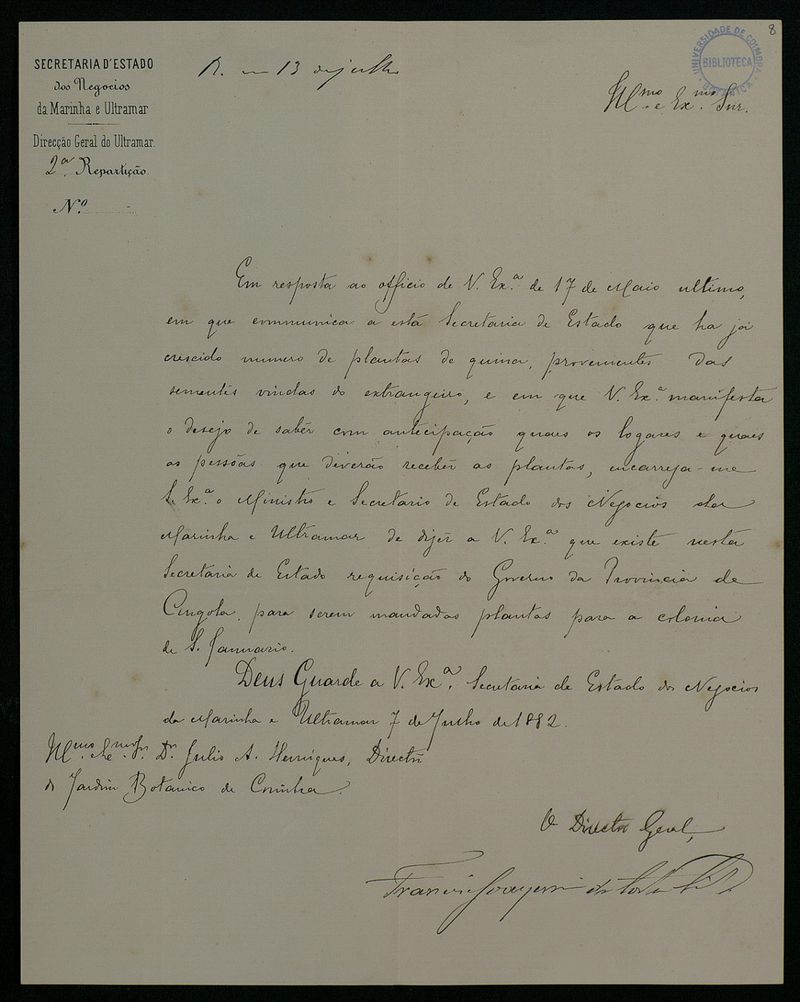 8
UNIVERSIDADE DE COIMBRA
BIBLIOTECA
BOTANICA
SECRETARIA D'ESTADO
dos Negocios
da Marinha e Ultramar
Direcção Geral do Ultramar.
2ª Repartição
Nº
R. em 13 de julho
Illmo. e Exmo. Snr.
Em resposta ao officio de V. Ex.ª de 17 de Maio ultimo,
em que communica a esta Secretaria de Estado que ha já
crescido numero de plantas de quina, provenientes das
sementes vindas do extrangeiro, e em que V. Ex.ª manifesta
o desejo de saber com antecipação quaes os logares e quaes
as pessôas que deverão receber as plantas, encarrega-me
S. Ex.ª o Ministro e Secretario de Estado dos Negocios da
Marinha e Ultramar de dizer a V. Ex.ª que existe nesta
Secretaria de Estado requisição do Governo da Provincia de
Angola, para serem mandadas plantas para a colonia
de S. Januario.
Deus Guarde a V. Ex.ª. Secretaria de Estado dos Negocios
da Marinha e Ultramar 7 de Julho de 1882.
Illmo. e Exmo. Snr. Dr. Julio A. Henriques, Director
do Jardim Botanico de Coimbra.
O Director Geral,
Francisco Joaquim da Costa e Silva